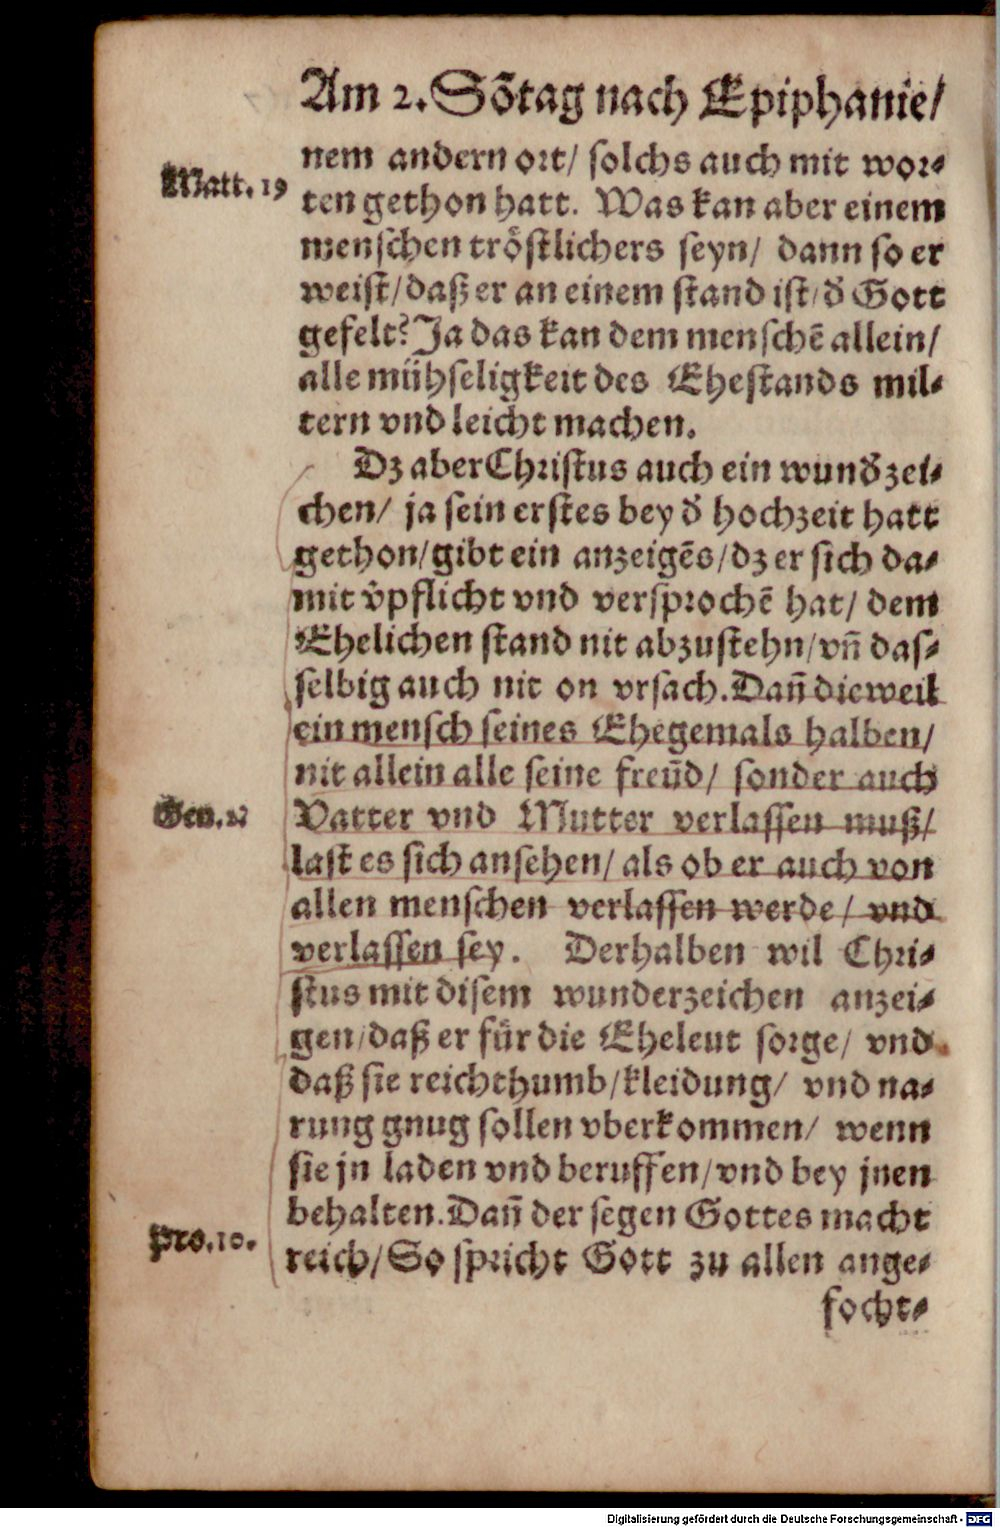 Am 2. Sõtag nach Epiphanie/
nem andern ort/ solchs auch mit wor⸗
Matt. 19
ten gethon hatt. Was kan aber einem
menschen tröstlichers seyn/ dann so er
weist/daß er an einem stand ist/ď Gott
gefelt? Ja das kan dem menschẽ allein/
alle mühseligkeit des Ehestands mil⸗
tern vnd leicht machen.
Dz aber Christus auch ein wunďzei⸗
chen/ ja sein erstes bey ď hochzeit hatt
gethon/gibt ein anzeigẽs/dz er sich da⸗
mit v̓pflicht vnd versprochẽ hat/ dem
Ehelichen stand nit abzustehn/vñ das⸗
selbig auch nit on vrsach. Dañ dieweil
ein mensch seines Ehegemals halben/
nit allein alle seine freũd/ sonder auch
Gen. 2
Vatter vnd Mutter verlassen muß/
last es sich ansehen/ als ob er auch von
allen menschen verlassen werde/ vnd
verlassen sey. Derhalben wil Chri⸗
stus mit disem wunderzeichen anzei⸗
gen/daß er für die Eheleut sorge/ vnd
daß sie reichthumb/kleidung/ vnd na⸗
rung gnug sollen vberkommen/ wenn
sie jn laden vnd beruffen/vnd bey jnen
behalten. Dañ der segen Gottes macht
Pro. 10.
reich/ So spricht Gott zu allen ange⸗
focht⸗
Digitalisierung gefördert durch die Deutsche Forschungsgemeinschaft - DFG